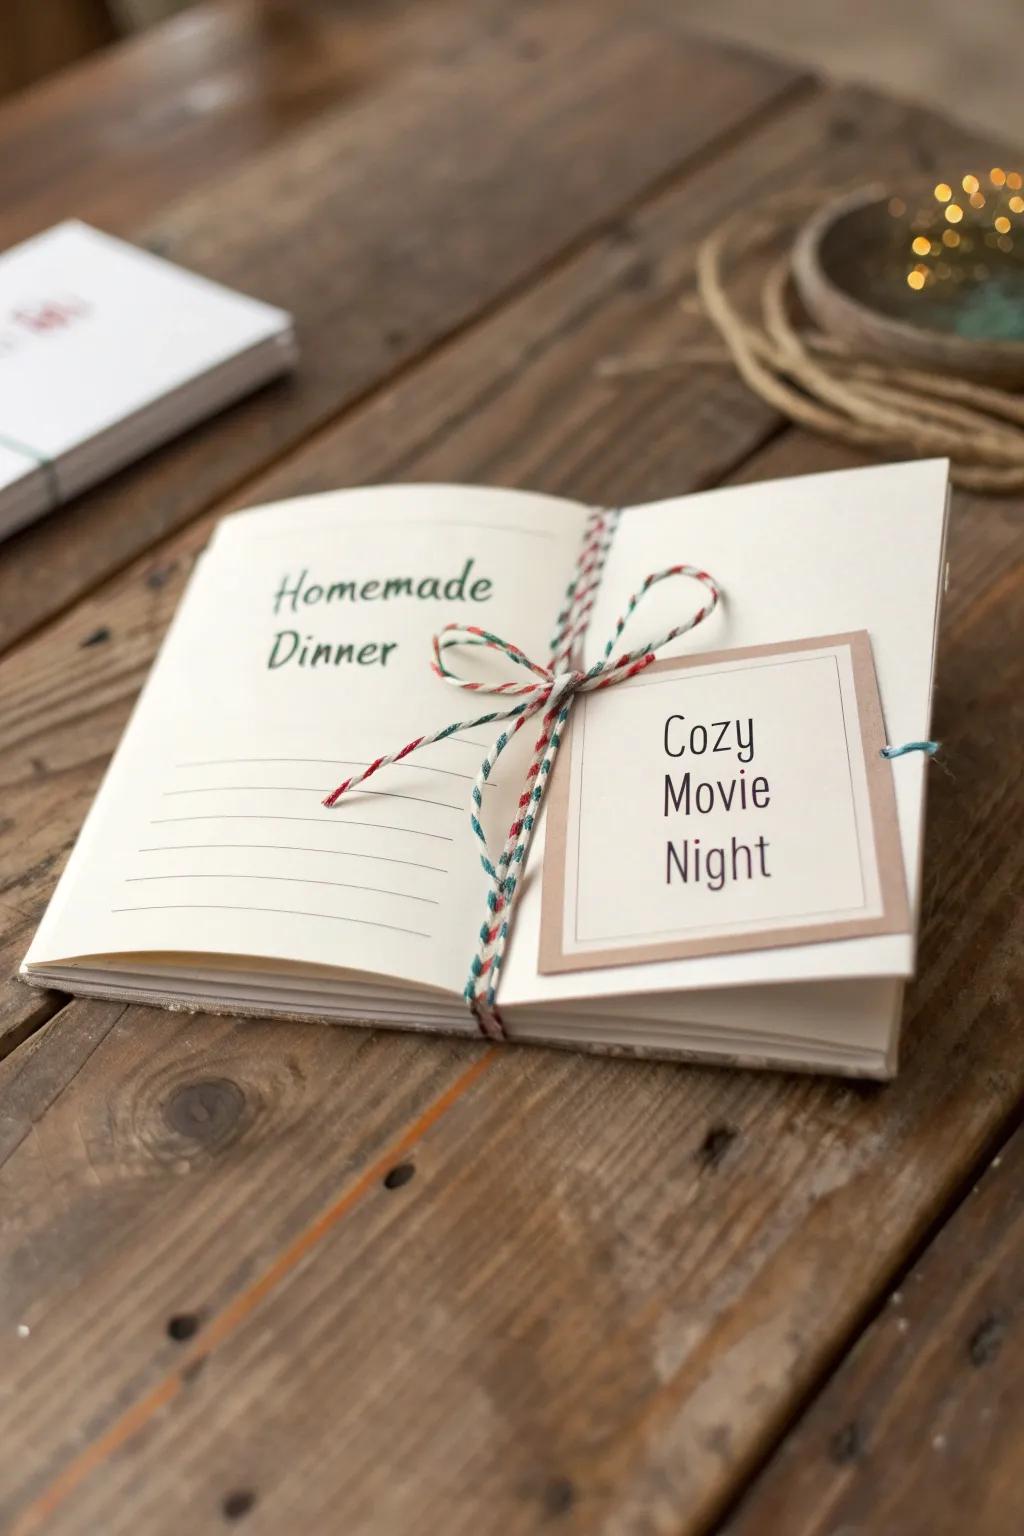 Homemade
Dinner
Cozy
Movie
Night